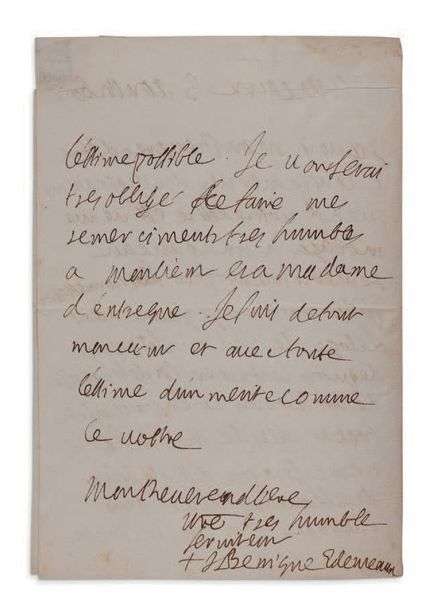 l'estime possible. Je vous serai
tres obligé de faire mes
remerciments tres humbles
a monsieur et a madame
d'entreque. Je suis de tout
mon cœur et avec toute
l'estime d'un merite comme
le vostre
Mon Reverend Pere
Vre tres humble
serviteur
+ J Benigne E. de Meaux